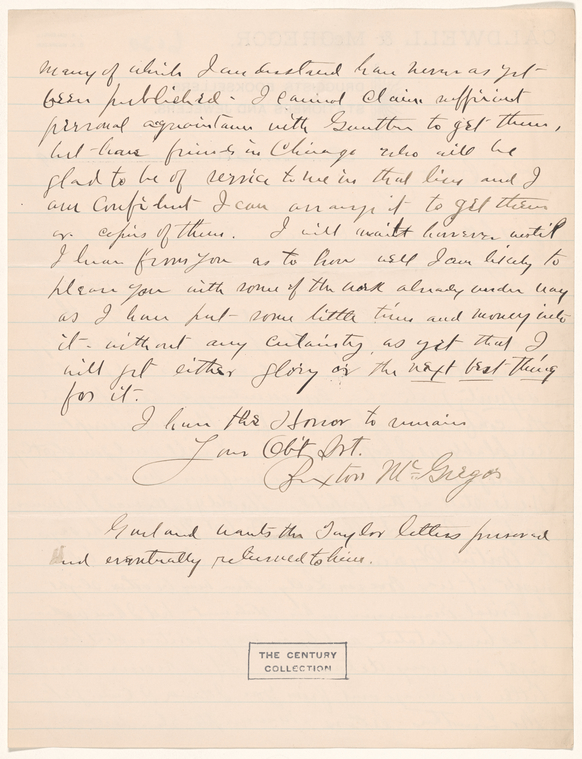 many of which I understand have never as yet
been published. I cannot claim sufficient
personal acquaintance with Gunther to get them,
but have friends in Chicago who will be
glad to be of service to me in that line and I
am confident I can arrange it to get them
or copies of them. I will wait however until
I hear from you as to how well I am likely to
please you with some of the work already under way
as I have put some little time and money into
it without any certainty as yet that I
will get either glory or the next best thing
for it.
I have the Honor to remain
Your Obt Svt.
Buxton McGregor
Garland wants the Taylor letters preserved
and eventually returned to him.
THE CENTURY
COLLECTION